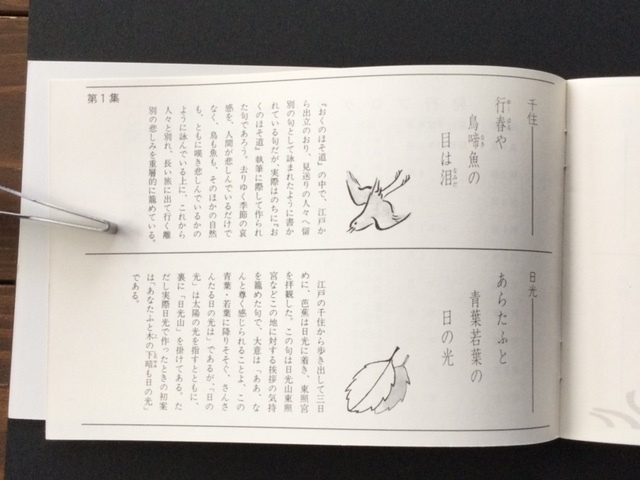 第1集
千住
行春や
鳥啼魚の
目は泪
『おくのほそ道』の中で、江戸か
ら出立のおり、見送りの人々へ留
別の句として詠まれたように書か
れている句だが、実際はのちに『お
くのほそ道』執筆に際して作られ
た句であろう。去りゆく季節の哀
感を、人間が悲しんでいるだけで
なく、鳥も魚も、そのほかの自然
も、ともに嘆き悲しんでいるかの
ように詠んでいる上に、これから
人々と別れ、長い旅に出て行く離
別の悲しみを重層的に籠めている。
日光
あらたふと
青葉若葉の
日の光
江戸の千住から歩き出して三日
めに、芭蕉は日光に着き、東照宮
を拝観した。この句は日光山東照
宮などこの地に対する挨拶の気持
を籠めた句で、大意は「ああ、な
んと尊く感じられることよ、この
青葉・若葉に降りそそぐ、さんさ
んたる日の光は」であるが、「日の
光」は太陽の光を指すとともに、
裏に「日光山」を掛けてある。た
だし実際日光で作ったときの初案
は「あなたふと木の下暗も日の光」
である。